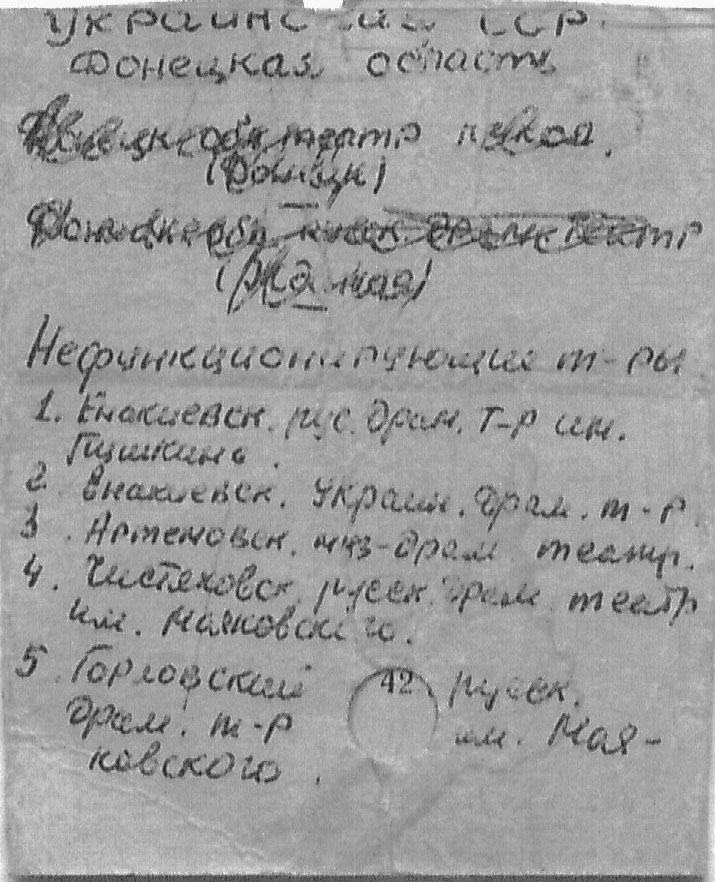 Украинская ССР.
Донецкая область
Донецк обл театр кукол.
(Донецк)
театр
(Жданов)
Нефункционирующие т-ры
1. Енакиевск. рус. драм. т-р им.
Пушкина.
2. Енакиевск. Украин. драм. т-р.
3. Артемовск. муз-драм театр.
4. Чистяковск. русск. драм театр
им. Маяковского.
5. Горловский русск.
42
драм. т-р им. Мая-
ковского.